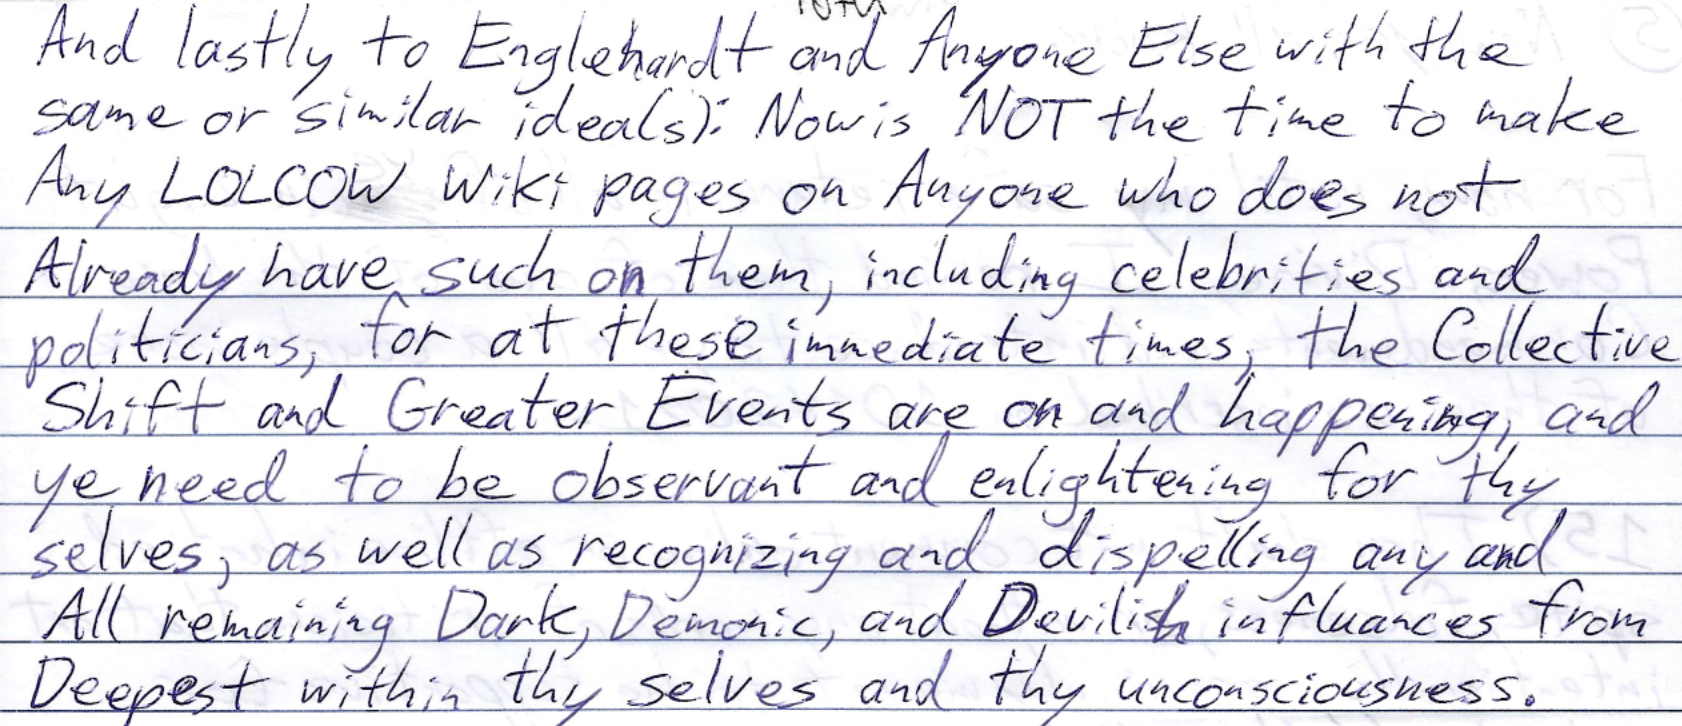 And lastly to Englehardt and Anyone Else with the
same or similar idea(s): Now is NOT the time to make
Any LOLCOW Wiki pages on Anyone who does not
Already have such on them, including celebrities and
politicians, for at these immediate times, the Collective
Shift and Greater Events are on and happening, and
ye need to be observant and enlightening for thy
selves, as well as recognizing and dispelling any and
All remaining Dark, Demonic, and Devilish influances from
Deepest within thy selves and thy unconsciousness.